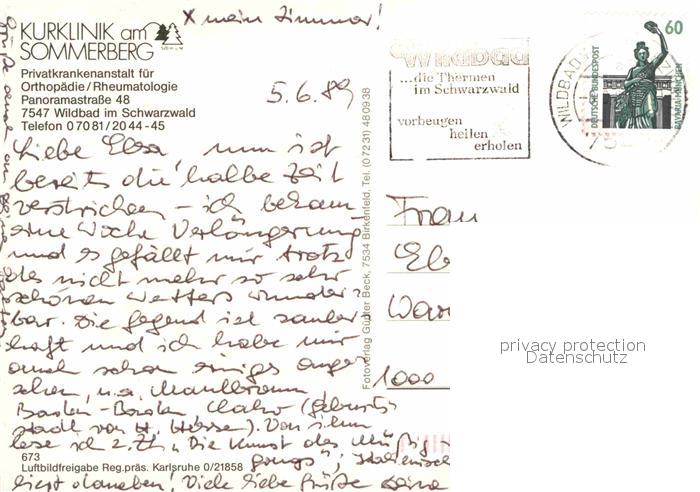 x mein Zimmer!
KURKLINIK am
SOMMERBERG
Privatkrankenanstalt für
Orthopädie/Rheumatologie
Panoramastraße 48
7547 Wildbad im Schwarzwald
Telefon 07081/2044-45
5.6.89
Liebe Elsa, nun ist
bereits die halbe Zeit
verstrichen - ich bekam
eine Woche Verlängerung
und es gefällt mir trotz
des nicht mehr so sehr
schönen Wetters wunder-
bar. Die Gegend ist zauber-
haft und ich habe mir
auch schon einiges ange-
sehen, u.a. Maulbronn,
Baden-Baden, Calw (Geburts
stadt von H. Hesse). Von ihm
lese ich z.Zt. "Die Kunst des Müßig
gangs", Italienisch
liegt daneben! Viele liebe Grüße
673
Luftbildfreigabe Reg.präs. Karlsruhe 0/21858
Fotoverlag Günter Beck, 7534 Birkenfeld, Tel. (07231) 480938
Wildbad
...die Thermen
im Schwarzwald
vorbeugen
heilen
erholen
WILDBAD
75
60
DEUTSCHE BUNDESPOST
BAVARIA MÜNCHEN
Frau
El
War
1000
privacy protection
Datenschutz